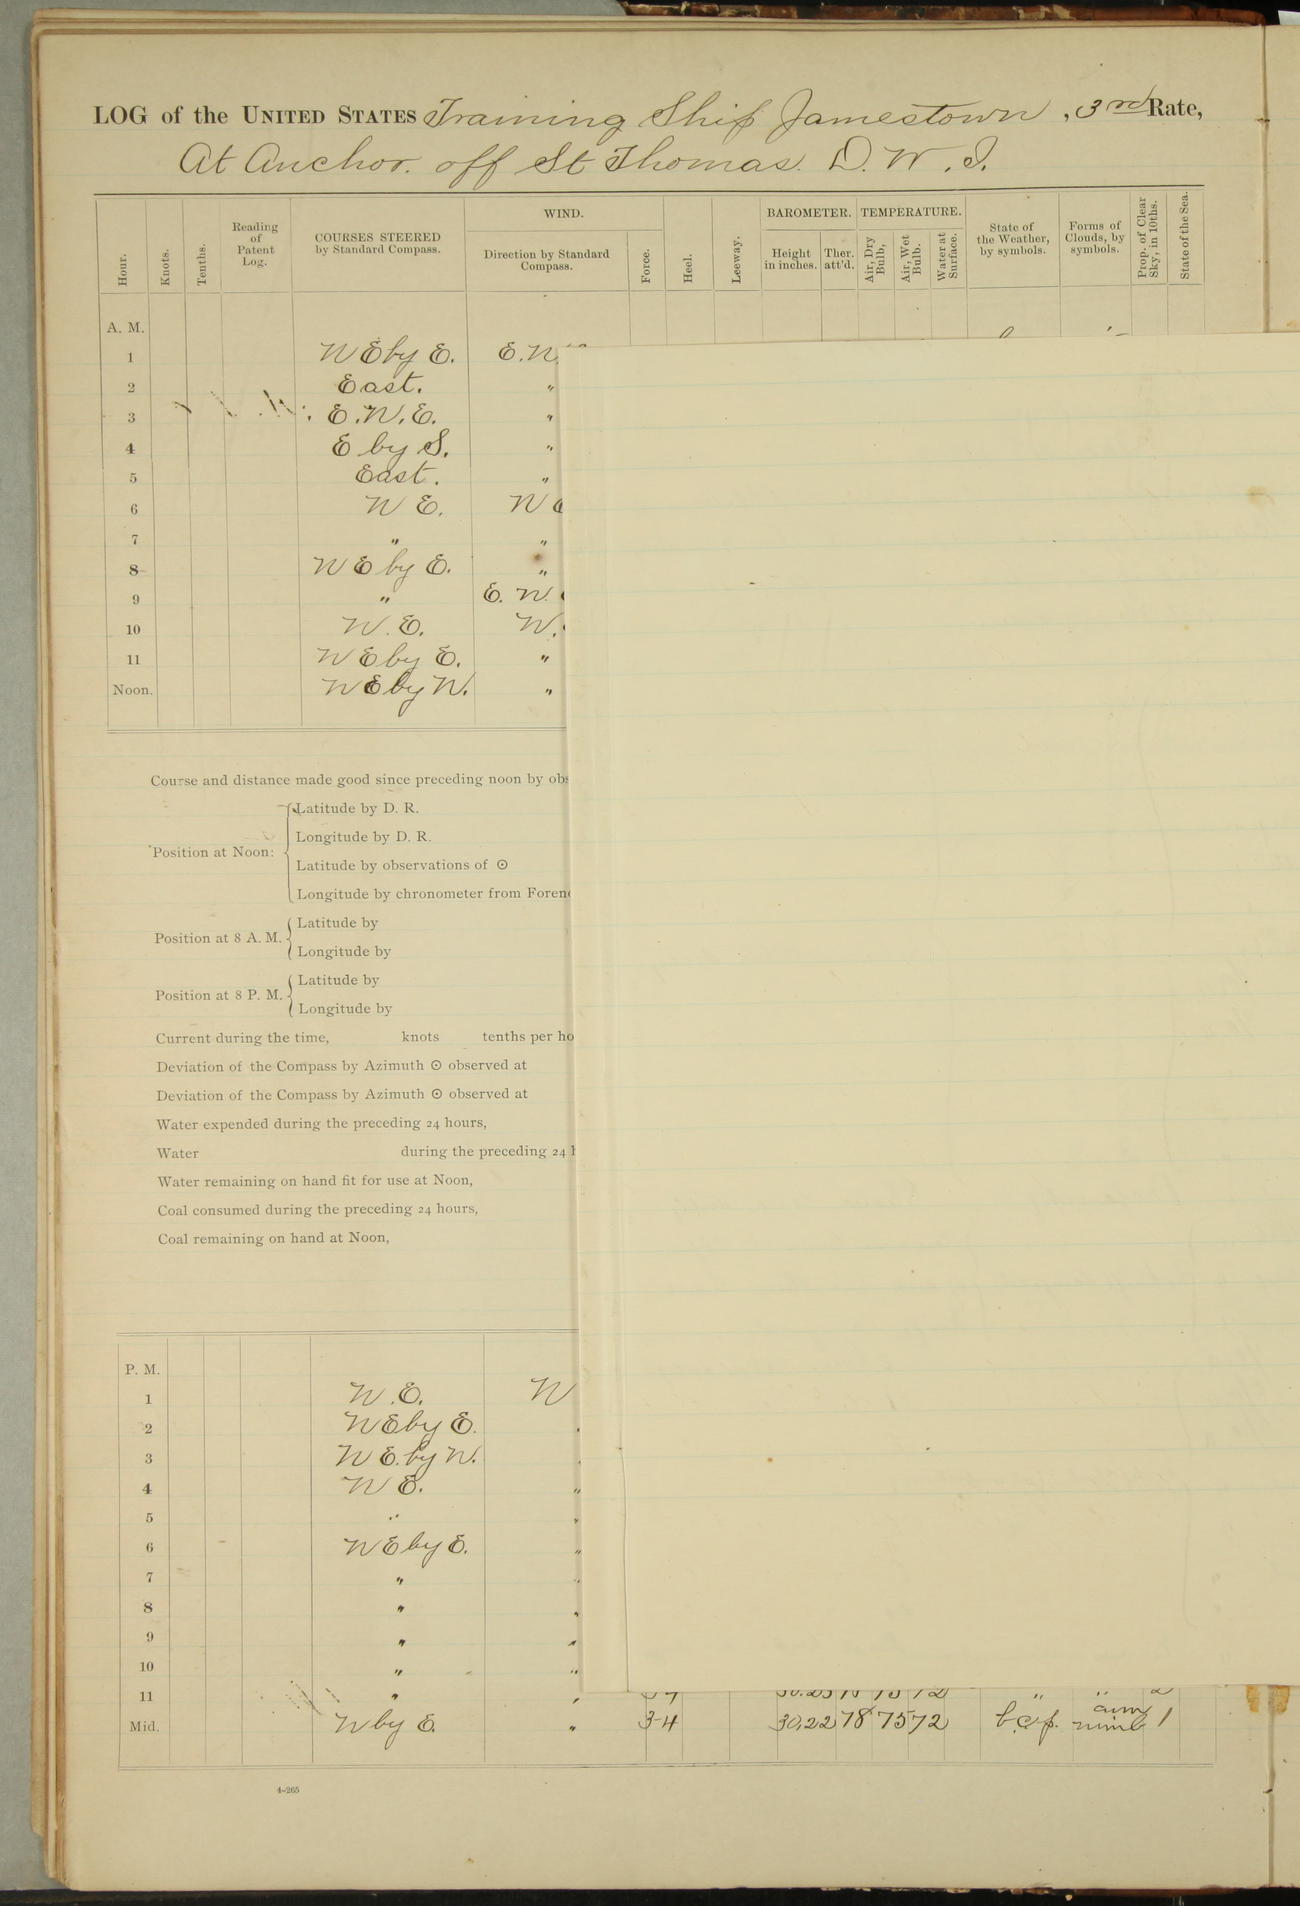 LOG of the UNITED STATES Training Ship Jamestown, 3rd Rate,
At Anchor. off St Thomas. D. W. I.
Hour. Knots. Tenths. Reading of Patent Log. COURSES STEERED by Standard Compass. WIND. Direction by Standard Compass. Force. Heel. Leeway. BAROMETER. Height in inches. Ther. att'd. TEMPERATURE. Air, Dry Bulb, Air, Wet Bulb. Water at Surface. State of the Weather, by symbols. Forms of Clouds, by symbols. Prop. of Clear Sky, in 10ths. State of the Sea.
A. M.
1 N E by E. E. N.
2 East. "
3 E. N. E. "
4 E by S. "
5 East. "
6 N E. N
7 " "
8 N E by E. "
9 " E. N.
10 N. E. N.
11 N E by E. "
Noon. N E by N. "
Course and distance made good since preceding noon by obs
Position at Noon:
Latitude by D. R.
Longitude by D. R.
Latitude by observations of ☉
Longitude by chronometer from Foren
Position at 8 A. M.
Latitude by
Longitude by
Position at 8 P. M.
Latitude by
Longitude by
Current during the time, knots tenths per ho
Deviation of the Compass by Azimuth ☉ observed at
Deviation of the Compass by Azimuth ☉ observed at
Water expended during the preceding 24 hours,
Water during the preceding 24 h
Water remaining on hand fit for use at Noon,
Coal consumed during the preceding 24 hours,
Coal remaining on hand at Noon,
P. M.
1 N. E. N
2 N E by E.
3 N E. by N.
4 N E. "
5 " "
6 N E by E. "
7 " "
8 " "
9 " "
10 " "
11 " " " "
Mid. N by E. " 3-4 30.22 78 75 72 b.c.p. cum nimb 1
4-265